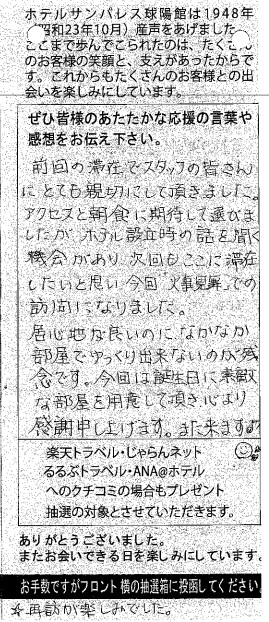 ホテルサンパレス球陽館は1948年
昭和23年10月）産声をあげました
ここまで歩んでこられたのは、たくさん
のお客様の笑顔と、支えがあったからで
す。これからもたくさんのお客様との出
会いを楽しみにしています。
ぜひ皆様のあたたかな応援の言葉や
感想をお伝え下さい。
前回の滞在でスタッフの皆さん
にとても親切にして頂きました。
アクセスと朝食に期待して選びま
したが、ホテル設立時の話を聞く
機会があり、次回もここに滞在
したいと思い今回での
訪沖になりました。
居心地が良いのに、なかなか
部屋でゆっくり出来ないのが残
念です。今回は誕生日に素敵
な部屋を用意して頂き心より
感謝申し上げます。また来ます
楽天トラベル・じゃらんネット
るるぶトラベル・ANA@ホテル
へのクチコミの場合もプレゼント
抽選の対象とさせていただきます。
ありがとうございました。
またお会いできる日を楽しみにしています。
お手数ですがフロント横の抽選箱に投函してください
☆再訪が楽しみでした。